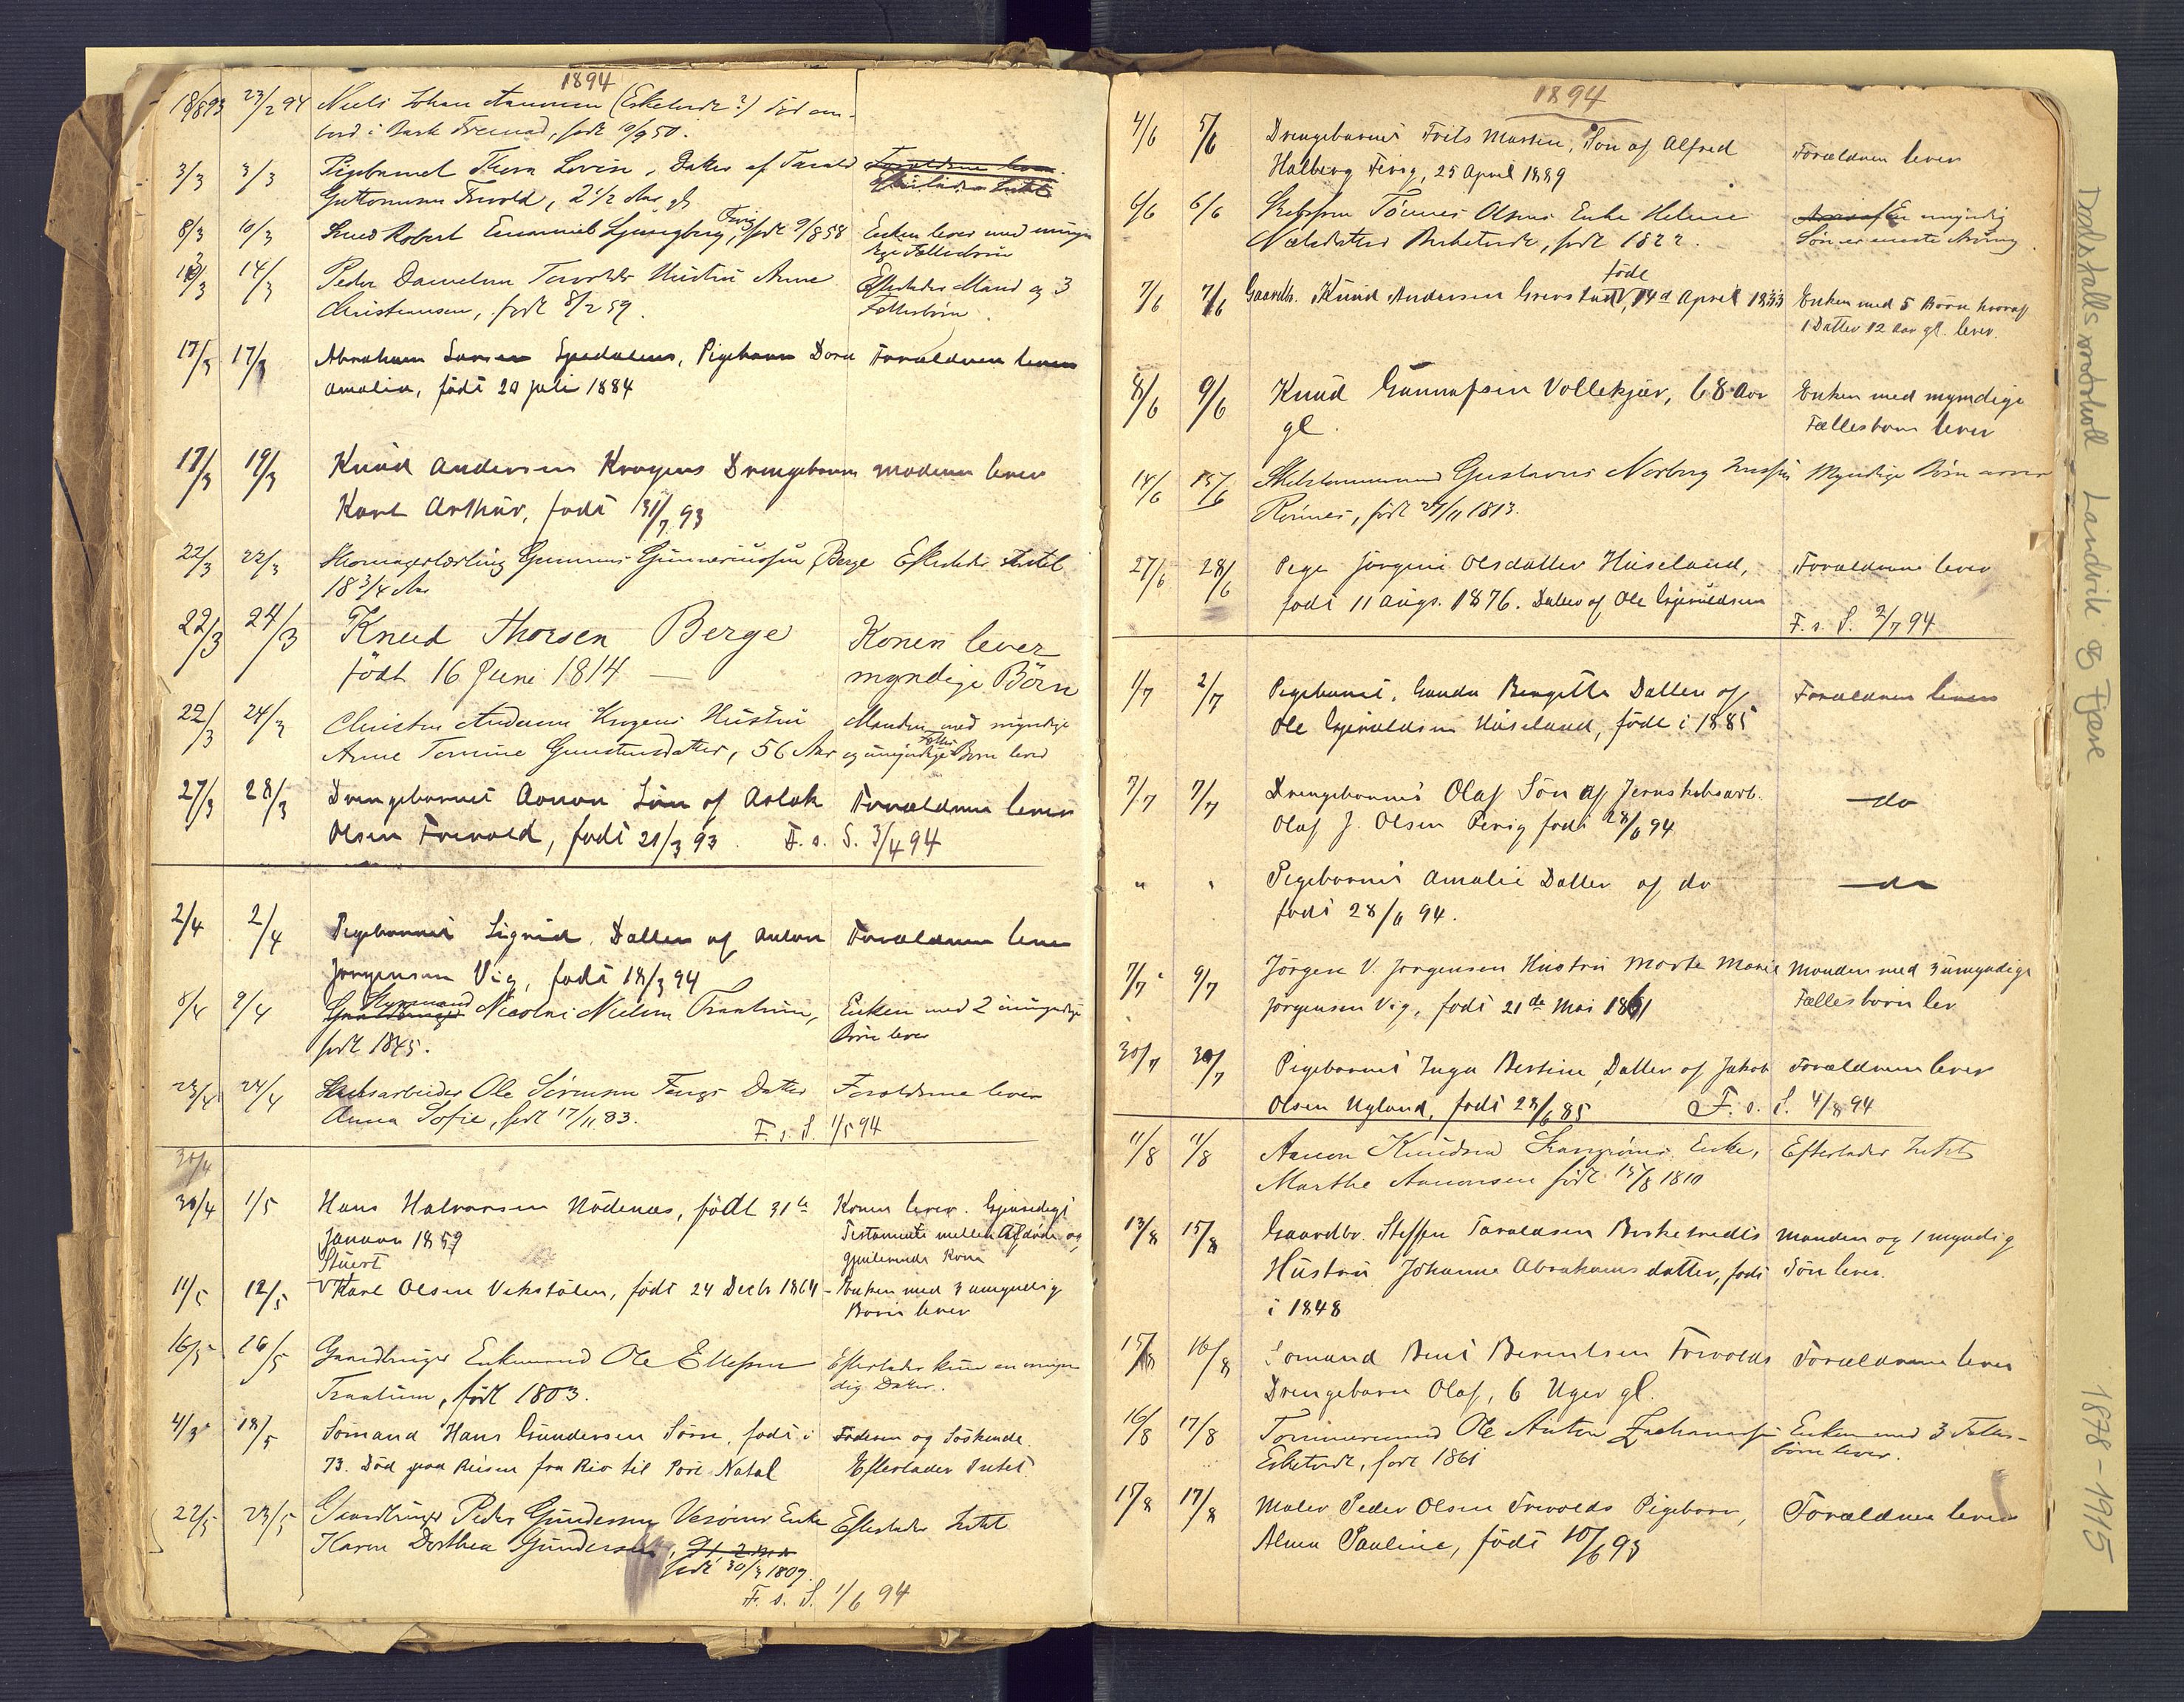 1894
18/8 93 23/2 94 Niels Johan Aanensen (Eskeland?) død om-
bord i Bark Fremad, født 10/9 50.
3/3 3/3 Pigebarnet Thora Lovise, Datter af Tarald
Guttormsen Frivold, 2 1/2 Aar gl
8/3 10/3 Robert Emanuel Ljungberg, Fevig, født 9/8 58 Enken lever med umyn-
dige Fællesbørn
13/3 14/3 Peder Danielsen Hustru Anne Efterlader Mand og 3
Christensen, født 8/2 59. Fællesbørn.
17/3 17/3 Abraham Larsen Spedalens, Pigebarn Dora Forældrene lever
Amalia, født 20 juli 1884
17/3 19/3 Knud Andersen Krogens Drengebarn Moderen lever
Karl Arthur, født 31/7 93
22/3 22/3 Skomagerlærling Gunnerius Berge Efterlader Intet
18 3/4 Aar
22/3 24/3 Knud Thorsen Berge Konen lever
født 16 Juni 1814 — myndige Börn
22/3 24/3 Christen Andersen Krogens Hustru Manden med myndige
Anne Tomine Gundersdatter, 56 Aar og umyndige Fælles Børn lever
27/3 28/3 Drengebarnet Aanon Søn af Aslak Forældrene lever
Olsen Frivold, født 21/3 93. F. s. S. 3/4 94
2/4 2/4 Pigebarnet Sigrid, Datter af Anton Forældrene lever
Jørgensen Vig, født 18/3 94
8/4 9/4 Styrmand Nicolai Nielsen Traalum, Enken med 2 umyndige
født 1845. Børn lever
23/4 24/4 Ole Sørensen Fevigs Datter Forældrene lever
Anna Sofie, født 17/11 83. F. s. S. 1/5 94
30/4
30/4 1/5 Hans Halvorsen Nødenæs, født 31te Konen lever. Gjensidigt
Januar 1859 Testamente mellem Afdøde og
Stuert gjenlevende Kone
11/5 12/5 Karl Olsen Vekstølen, født 24 Decbr 1864 - Enken med 3 umyndig
Børn lever
16/5 26/5 Gaardbruger Enkemand Ole Ellefsen Efterlader kun en umyn-
Traalum, født 1803. dig Datter.
4/3 18/5 Sømand Hans Gundersen Sørn, født i Faderen og Søskende.
73. Død paa Reisen fra Rio til Port Natal Efterlader Intet
22/5 23/5 Gaardbruger Peder Gundersen Enke Efterlader Intet
Karen Dorthea Gundersen,
født 30/3 1809.
F. s. S. 1/6 94
1894
4/6 5/6 Drengebarnet Frits Martin, Søn af Alfred Forældrene lever
Halberg Fevig, 25 April 1889
6/6 6/6 Tønnes Olsens Enke Helene myndig
Birketvedt, født 1822. Søn er eneste Arving.
7/6 7/6 Gaardb. Knud Andersen Grefstad, født 14d April 1833 Enken med 5 Børn hvoraf
1 Datter 12 Aar gl. lever.
8/6 9/6 Knud Gunnufsen Vollekjær, 68 Aar Enken med myndige
gl. Fællesbørn lever
14/6 15/6 Skibstømmermand Gustavus Norberg Myndige Børn arver
Rønnes, født 27/11 1813.
27/6 28/6 Pige Jørgine Olsdatter Huseland, Forældrene lever
født 11 Augs. 1876. Datter af Ole Gjeruldsen F. s. S. 2/7 94
1/7 2/7 Pigebarnet, Gunda Bergitte Datter af Forældrene lever
Ole Gjeruldsen Huseland, født i 1885
7/7 7/7 Drengebarnet Olaf Søn af Jernskibsarb. — do
Olaf J. Olsen Fevig født 28/6 94
" " Pigebarnet Amalie Datter af do — do
født 28/6 94.
7/7 9/7 Jørgen V. Jørgensen Hustru Marte Marie Manden med 3 umyndige
Jørgensen Vig, født 21de Mai 1861 Fællesbørn lev
30/7 30/7 Pigebarnet Inga Bertine, Datter af Jakob Forældrene lever
Olsen Ugland, født 28/6 85 F. s. S. 4/8 94
11/8 11/8 Aanon Knudsen Enke, Efterlader Intet
Marthe Aanonsen født 15/8 1810
13/8 15/8 Gaardbr. Steffen Taraldsen Birketvedts Manden og 1 myndig
Hustru Johanne Abrahamsdatter, født Søn lever.
i 1848
15/8 16/8 Sømand Bent Berentsen Frivolds Forældrene lever
Drengebarn Olaf, 6 Uger gl.
16/8 17/8 Tømmermand Ole Anton Zachariassen Enken med 3 Fælles-
født 1861 børn lever.
15/8 17/8 Maler Peder Olsen Frivolds Pigebarn, Forældrene lever
Alma Pauline, født 10/6 93
Dødsfallsprotokoll Landvik og Fjære 1878-1915